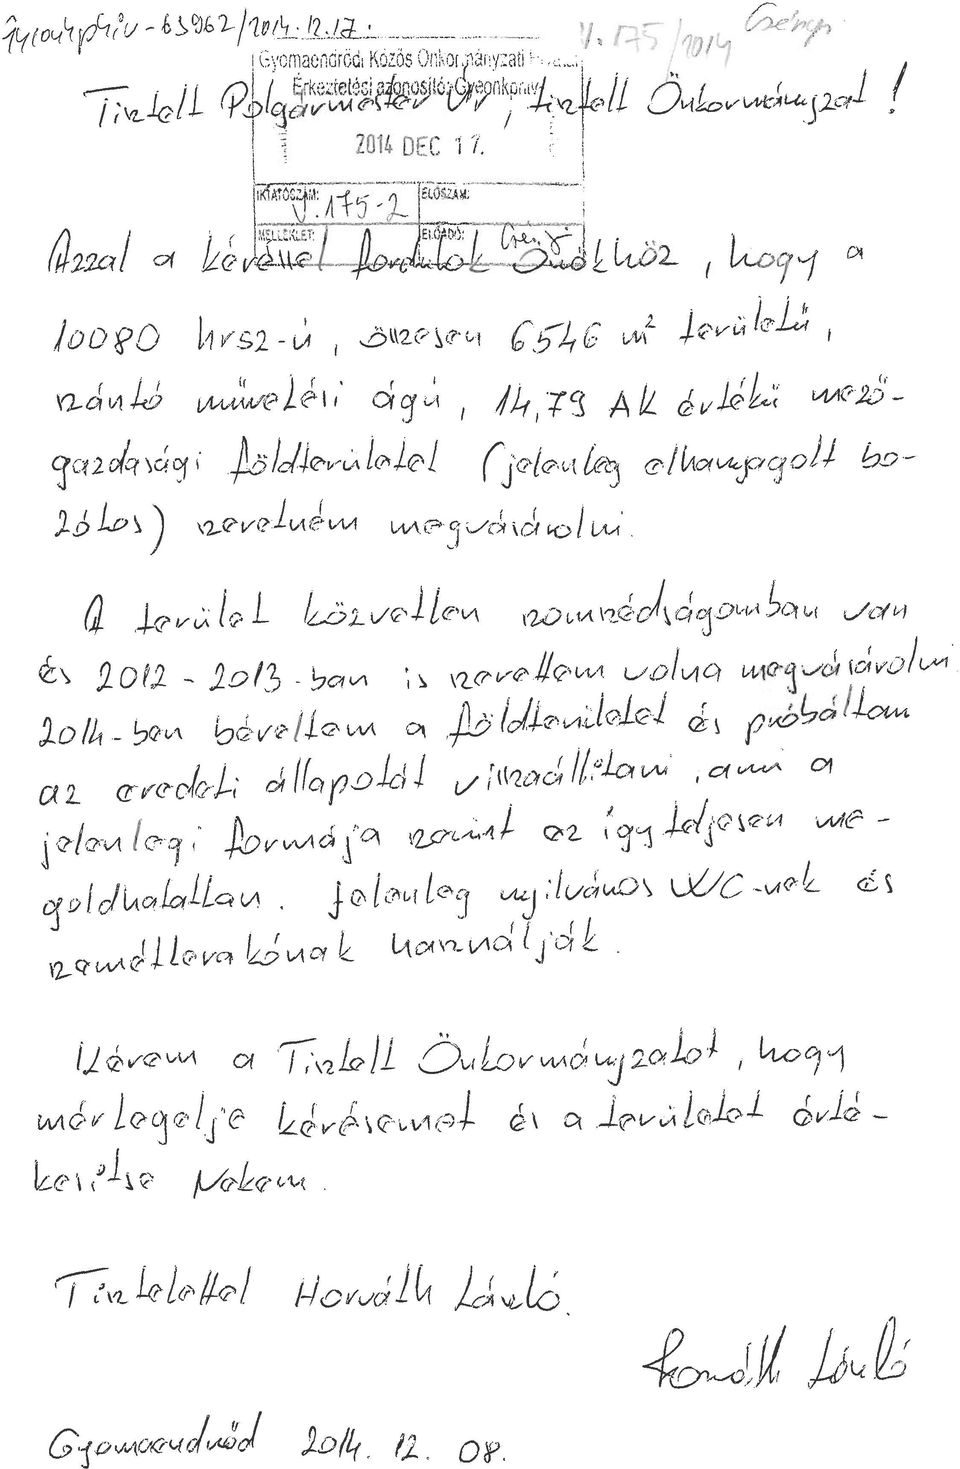 Gyomaendrődi Közös Önkormányzati
V. 175/2014
Érkeztetési azonosító:
Tisztelt Polgármester Úr, tisztelt Önkormányzat!
2014 DEC 17.
IKTATÓSZÁM: V.175-2 ELŐSZÁM:
MELLÉKLET: ELŐADÓ:
Azzal a kéréssel fordulok Önökhöz, hogy a
10080 hrsz-ú, összesen 6546 m² területű,
szántó művelési ágú, 14,79 AK értékű mező-
gazdasági földterületet (jelenleg elhanyagolt bo-
zótos) szeretném megvásárolni.
A terület közvetlen szomszédságomban van
és 2012 - 2013-ban is szerettem volna megvásárolni
2014-ben béreltem a földterületet és próbáltam
az eredeti állapotát visszaállítani, ami a
jelenlegi formája szerint ez így teljesen me-
goldhatatlan. Jelenleg nyilvános WC-nek és
szemétlerakónak használják.
Kérem a Tisztelt Önkormányzatot, hogy
mérlegelje kérésemet és a területet érté-
kesítse Nekem.
Tisztelettel Horváth László.
Horváth László
Gyomaendrőd 2014. 12. 08.